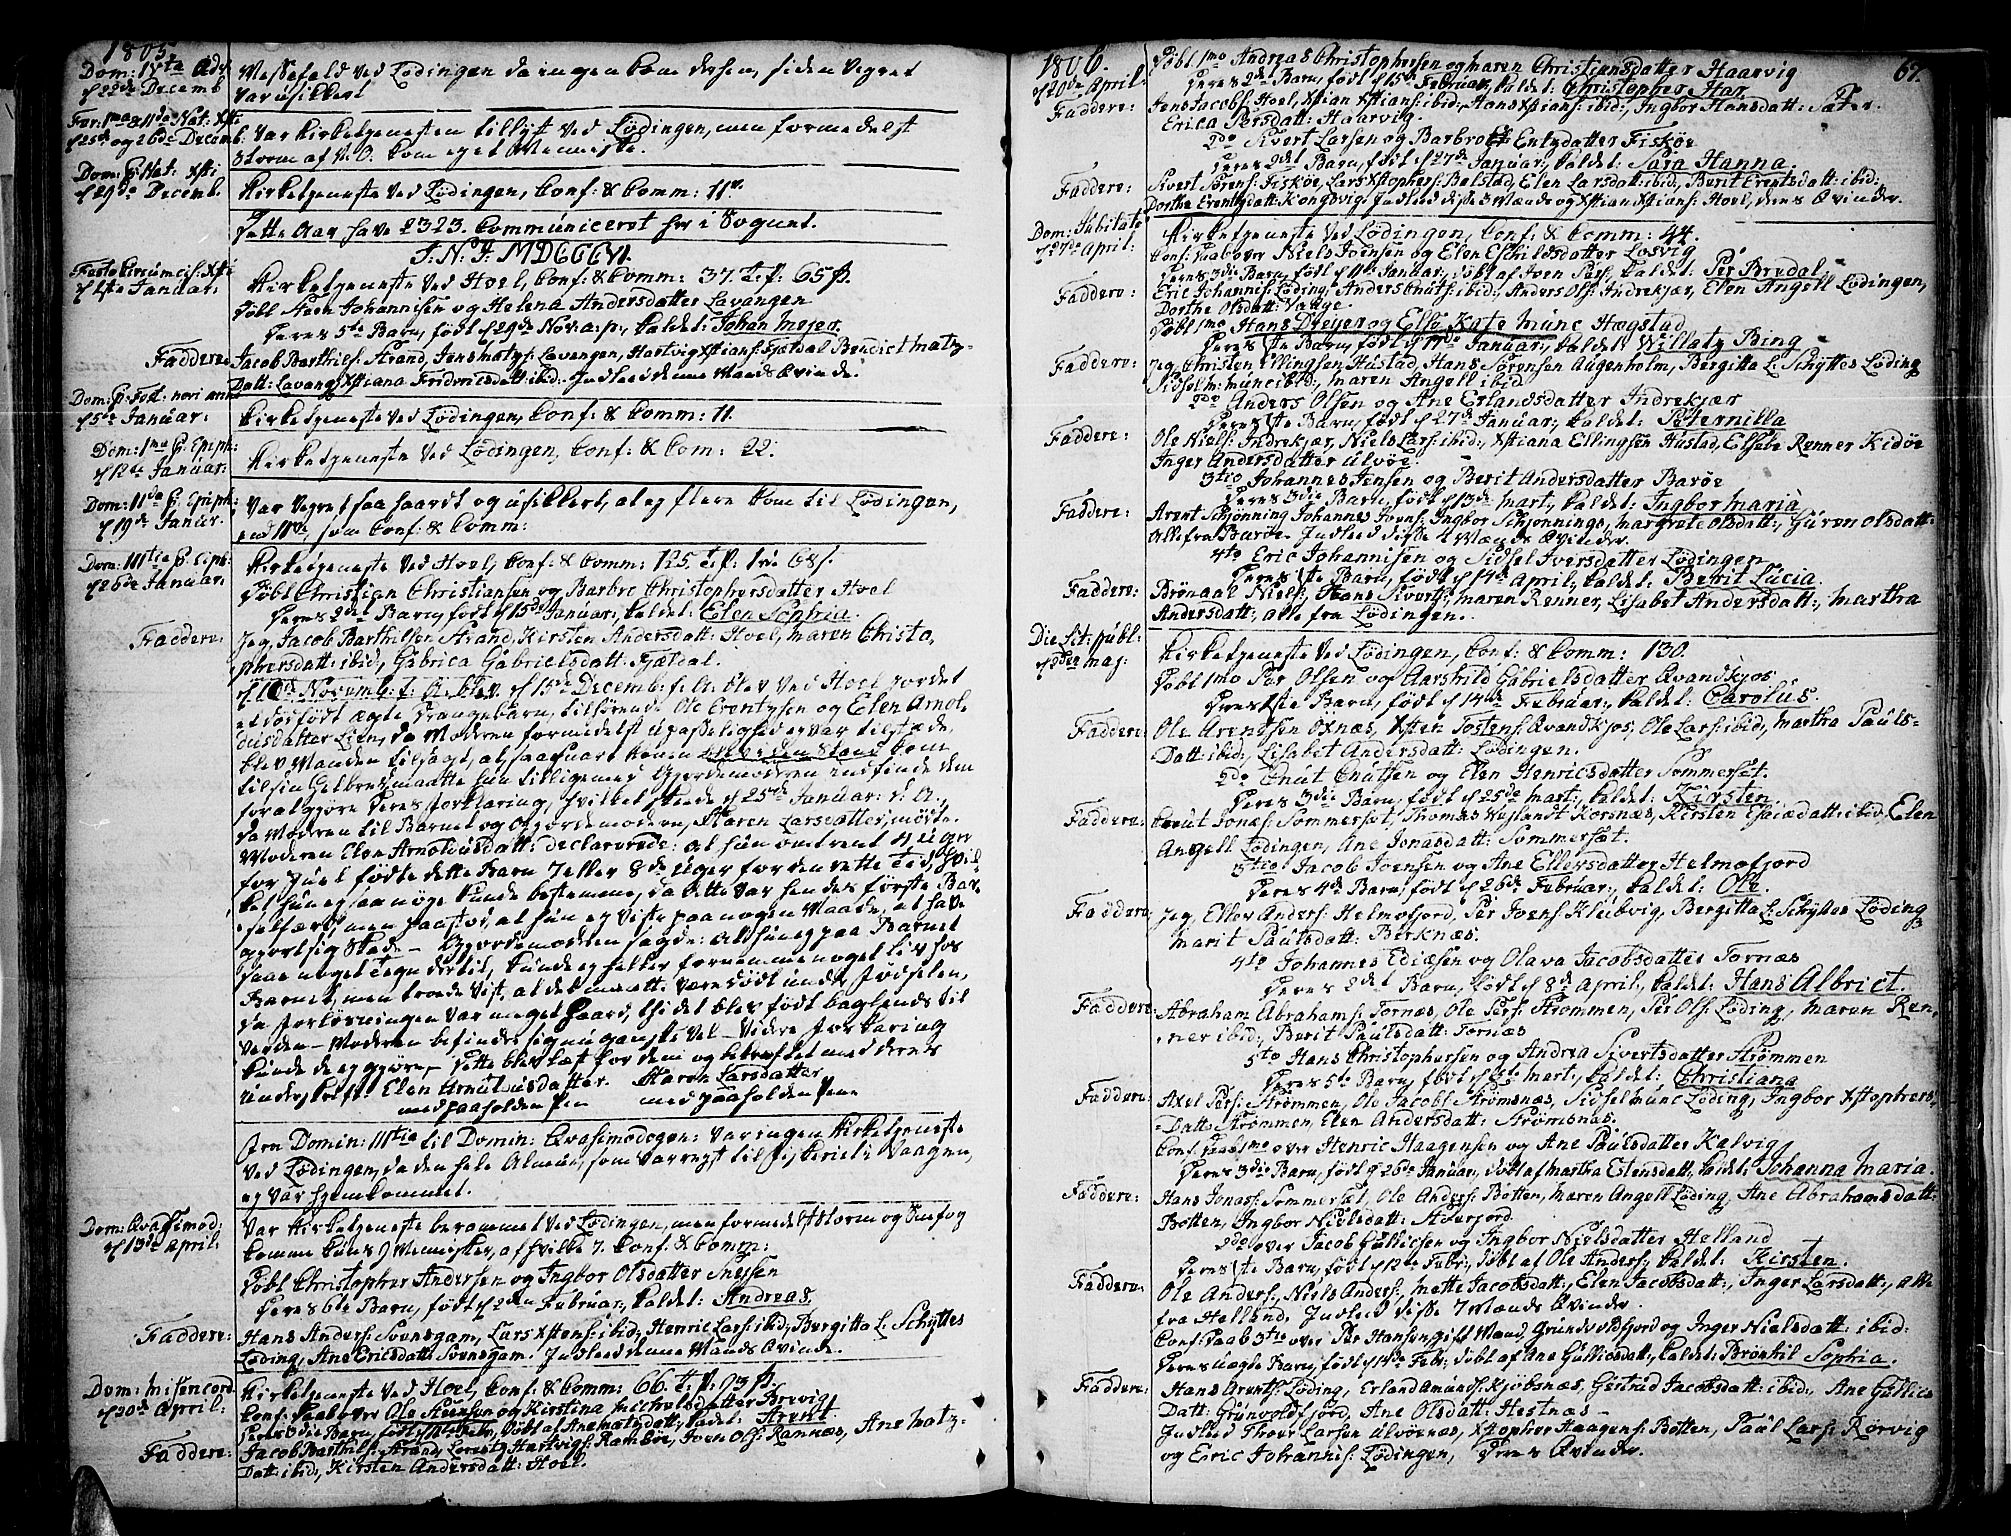 1805
Dom: IVta Adv. d 22de Decemb.
Messefald ved Lødingen da ingen kom dersen, siden Veyret
var usikkert
Fer: 1ma & 11da Nat: Xsti
d 25de og 26de Decemb.
Var Kirketjenesten tillyst ved Lødingen, men formedelst
Storm af N.O. kom ej et Menneske.
Dom: p: Nat: Xsti
d 29de Decemb.
Kirketjeneste ved Lødingen, Conf: & Comm: 11.
Dette Aar have 2323. Communiceret her i Sognet.
I.N.J. MDCCCVI.
Festo Circumcis: Xsti
d 1ste Januar:
Kirketjeneste ved Hoel, Conf: & Comm: 37. T.p: 65 s.
Døbt Johannisen og Helena Andersdatter Lavangen
Deres 5te Barn, født d 29de Nov: a: p:, kaldet: Johan Mejer.
Faddere:
Jacob Barthels: Strand, Jens Matzs: Lavangen, Hartvig Xstians: Fjældal Bendict Matz-
Datt: Lavang, Xstiana Fridricsdatt: ibid. Indleed denne Mands Qvinde.
d 5te Januar:
Kirketjeneste ved Lødingen, Conf: & Comm: 11.
Dom: 1ma p. Epiph:
d 12te Januar:
Kirketjeneste ved Lødingen, Conf: & Com: 22.
Dom: 11da p. Epiph:
d 19de Januar:
Var Veyret saa haardt og usikkert, at ej flere kom til Lødingen,
end 11ve, som Conf: & Comm:
Dom: 111tia p. Epiph:
d 26de Januar:
Kirketjeneste ved Hoel, Conf: & Comm: 125.
Døbt Christian Christiansen og Barbre Christophersdatter Hoel
Deres 2det Barn, født d 15de Januar:, kaldet: Elen Sophia.
Faddere:
Jeg, Jacob Barthelsen Strand, Kirsten Andersdatt: Hoel, Maren Christo,
phersdatt: ibid, Gabrica Gabrielsdatt: Fjældal.
d 15de Decemb: f: A. blev ved Hoel jordet
et dødfødt ægte Drengebarn, tilhørende Ole Erentzen og Elen Arnol-
dusdatter Lien, da Moderen formedelst Upasselighed ej var tilstæde,
blev Manden tilsagt, at saasnart Konen kom
til sin Helbred, maatte hun tilligemed Gjordemoderen indfinde dem
for at gjøre Deres Forklaring, hvilket skeede d 25de Januar: d: A:,
da Moderen til Barnet og Gjordemoderen, Karen Larsdatter, mødte.
Moderen Elen Arnoldusdatt: declarerede: at hun omtrent 4 Uger
for Juel fødte dette Barn 7 eller 8de Uger for den rette Tid, hvil-
ket hun ej saa nøye kunde bestemme, da dette var hendes første Bar-
selfærd, men paastod, at hun ej viste paa nogen Maade, at have
gjort sig Skade – Gjordemoderen sagde: at hun ej paa Barnet
saae noget Tegn dertil, kunde ej heller fornemme noget Liv hos
Barnet, men troede vist, at det maatte være dødt under Fødselen,
da Forløsningen var meget haard, thi det blev født baglends til
Verden – Moderen befinder sig nu ganske vel – Videre Forklaring
kunde de ej gjøre, – Dette blev læst for dem og bekræftet med deres
Underskrift Elen Arnoldusdatter Karen Larsdatter
med paaholden Pen med paaholden Pen
Fra Domin: 111tia til Domin: Qvasimodogen: var ingen Kirketjeneste
ved Lødingen, da den hele Almue, som var reyst til Fiskeriet i Vaagen,
ej var hjemkommet.
Dom: Qvasimod:
d 13de April:
Var Kirketjeneste berammet ved Lødingen, men formedelst Storm og Snefog
komme kuns 9 Mennesker, af hvilke 7. Conf: & Comm:
Døbt Christopher Andersen og Ingbor Olsdatter Snejsen
Deres 6te Barn, født d 2den Februar:, kaldet: Andreas.
Faddere:
Hans Anders: Svensgam, Lars Xstens: ibid, Henric Lars: ibid, Bergitta L: Schyttes
Løding, Ane Ericsdatt: Svensgam. Indleed denne Mands Qvinde.
Dom: Misericord
d 20de April:
Kirketjeneste ved Hoel, Conf: & Comm: 66. T.p. 93 s.
Conf: Daab over Ole Ifversen og Kirstina Michelsdatter Brevig
Deres 3die Barn, døbt af Ane Matzdatt:, kaldet: Arent.
Faddere:
Jacob Barthels: Strand, Lorentz Hartvigs: Ramsøe, Joen Ols: Rannæs, Ane Matz-
Datt: ibid, Kirsten Andersdatt: Hoel.
1806.
d 20de April:
67.
Døbt 1mo Andreas Christophersen og Maren Christiansdatter Haarvig
Deres 2det Barn, født d 15de Februar, kaldet: Christopher Har.
Faddere:
Jens Jacobs: Hoel, Xstian Xstians: ibid:, Hans Xstians: ibid:, Ingbor Hansdatt: Sæter.
Erica Persdatt: Haarvig.
2do Sivert Larsen og Barbro Entzdatter Fiskøe
Deres 2det Barn, født d 27de Januar:, kaldet: Sara Hanna.
Faddere:
Sivert Sørens: Fiskøe, Lars Xstophers: Balstad, Elen Larsdatt: ibid:, Berit Erentsdatt: ibid:
Dorthe Erentzdatt: Kongsvig. Indleed disse 3 Mænds og Xstian Xstians: Hoel, deres Qvinder.
Dom: Jubilate
d 27de April:
Kirketjeneste ved Lødingen, Conf: & Comm: 44.
Conf: Daab over Niels Joensen og Elen Eschildsdatter Løsvig
Deres 3die Barn, født d Januar:, døbt af Iven Pers:, kaldet: Per Bredal.
Faddere:
Eric Johannis: Løding, Anders Knuts: ibid:, Anders Ols: Indrekjær, Elen Angell Lødingen,
Dorthe Olsdatt: Vagge.
Døbt 1mo Hans Dreyer og Else Kate Munc Hægstad
Deres 1ste Barn, født d Januar:, kaldet: Willatz Bing
Faddere:
Jeg, Christen Ellingsen Hustad, Hans Sørensen Augenholm, Bergitta L: Schyttes Løding
Sidsel M: Munc ibid:, Maren Angell ibid
2do Anders Olsen og Ane Erlandsdatter Indrekjær
Deres 1ste Barn, født d 27de Januar:, kaldet: Peternilla
Faddere:
Ole Niels: Indrekjær, Niels Lars: ibid:, Xstiana Ellingsen Hustad, Elsebe Renner Kidøe
Inger Andersdatter Alvøe.
3tio Johannes Jensen og Berit Andersdatter Barøe
Deres 3die Barn, født d 13de Mart:, kaldet: Ingbor Maria
Faddere:
Arent Schjønning, Johannes Joens: Ingbor Schjønnings, Margrete Olsdatt:, Guren Olsdatt:
Alle fra Barøe. Indleed disse 4 Mænds Qvinder.
4to Eric Johannisen og Sidsel Iversdatter Lødingen
Deres 1ste Barn, født d 14de April:, kaldet: Berit Lucia.
Faddere:
Brønaal Niels:, Hans Siverts:, Maren Renner, Lisabet Andersdatt:, Martha
Andersdatt:, alle fra Lødingen.
Die Lit: publ:
d 2den Maj:
Kirketjeneste ved Lødingen, Conf: & Comm: 130.
Døbt 1mo Per Olsen og Aarshild Gabrielsdatter Qvandkjos
Deres 1ste Barn, født d 14de Februar:, kaldet: Carolus.
Faddere:
Ole Arentsen Oxnæs, Xsten Tostens: Qvandkjos, Ole Lars: ibid, Martha Pauls-
Datt: ibid:, Lisabet Andersdatt: Lødingen.
2do Cnut Cnutsen og Elen Henricsdatter Sommerset.
Deres 3die Barn, født d 25de Mart:, kaldet: Kirsten
Faddere:
Cnut Jonæs: Sommerset, Thomas Wejlandt Korsnæs, Kirsten Esaiædatt: ibid, Elen
Angell Lødingen, Ane Jonasdatt: Sommersæt.
3tio Jacob Joensen og Ane Ellevsdatter Helmofjord
Deres 4de Barn, født d 26de Februar:, kaldet: Ole.
Faddere
Jeg, Ellev Anders: Helmofjord, Per Joens: Klubvig, Bergitta L: Schyttes Løding
Marit Paulsdatt: Berknæs.
4to Johannes Ediæsen og Olava Jacobsdatter Tornæs
Deres 2det Barn, født d 8de April:, kaldet: Hans Albrict.
Faddere:
Abraham Abrahams: Tornæs, Ole Pers: Strømmen, Per Ols: Løding, Maren Ren,
ner ibid:, Berit Paulsdatt: Tornæs
5to Hans Christophersen og Andrea Sivertsdatter Strømmen
Deres 5te Barn, født d Mart:, kaldet: Christiana
Faddere:
Axel Pers: Strømmen, Ole Jacobs: Strømsnæs, Sidsel Munc Løding, Ingbor Xstophers-
Datt: Strømmen, Elen Andersdatt: Strømsnæs.
Conf: Daab 1mo over Henric Haagensen og Ane Paulsdatter Kalvig
Deres 3die Barn, født d 26de Januar, døbt af Martha Estensdatt: kaldt: Johanna Maria.
Faddere:
Hans Jonæs: Sommersæt, Ole Anders: Botten, Maren Angell Løding, Ane Abrahamsdatt:
Botten, Ingbor Nielsdatt: Aderfjord.
2do over Jacob Gullicsen og Ingbor Nielsdatter Helland
Deres 1ste Barn, født d 12te Febr:, døbt af Ole Anders:, kaldet: Kirsten.
Faddere:
Ole Anders:, Niels Anders:, Mette Jacobsdatt:, Elen Jacobsdatt:, Inger Larsdatt:, alle
fra Helland, Indleed disse 7 Mænds Qvinder.
Conf: Daab 3tio over Per Hansen, gift Mand, Grundvoldfjord og Inger Nielsdatt: ibid:
Deres uægte Barn, født d Febr:, døbt af Ane Gullicsdatt:, kaldet: Brønhil Sophia.
Faddere:
Hans Arents: Løding, Erland Amunds: Kjøbsnæs, Gertrud Jacobsdatt: ibid:, Ane Gullics
Datt: Grunvoldfjord, Ane Olsdatt: Hestnæs –
Indleed Thoer Larsen Alvøenæs, Xstopher Haagens: Botten, Paul Lars: Rørvig
og Eric Johannis: Lødingen, Deres Qvinder.